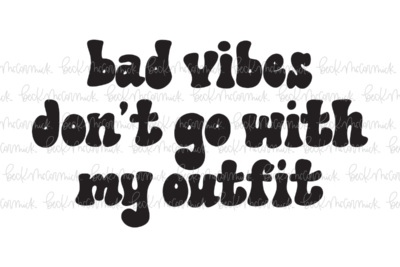 bad vibes
don't go with
my outfit